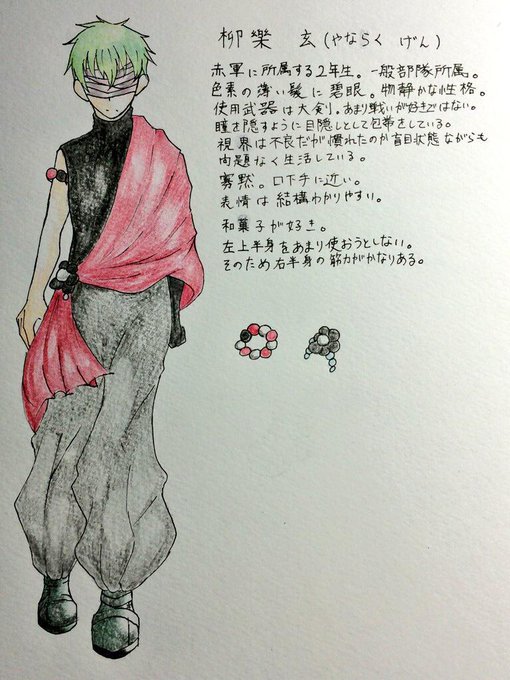 柳樂 玄(やならく げん)
赤軍に所属する2年生。一般部隊所属。
色素の薄い髪に碧眼。物静かな性格。
使用武器は大剣。あまり戦いが好きではない。
瞳を隠すように目隠しとして包帯をしている。
視界は不良だが慣れたのか盲目状態ながらも
問題なく生活している。
寡黙。口下手に近い。
表情は結構わかりやすい。
和菓子が好き。
左上半身をあまり使おうとしない。
そのため右半身の筋力がかなりある。